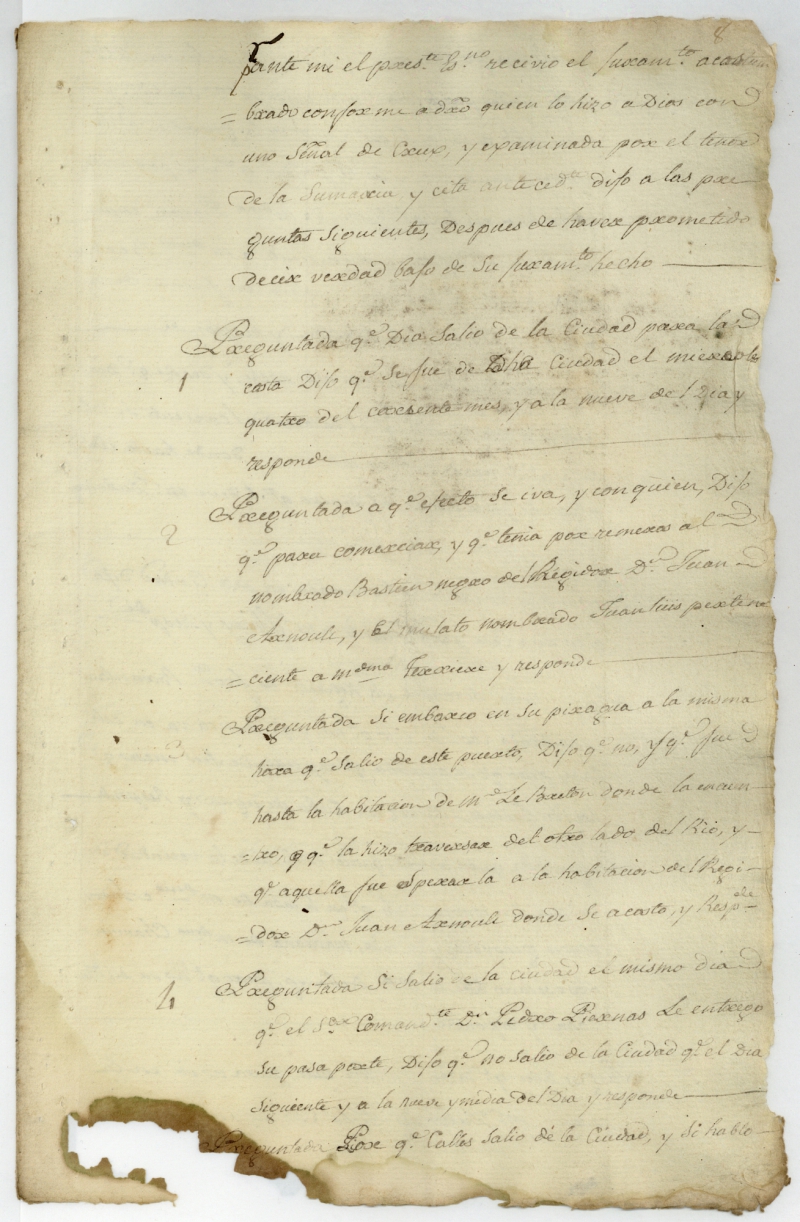 8
ante mi el pres.te Es.no recivio el juram.to acostum
= brado conforme a dro quien lo hizo a Dios con
uno Señal de Crux, y examinada por el tenor
de la Sumaria y cita anteced.te dijo a las pre
guntas siguientes, Despues de haver prometido
decir verdad bajo de su juram.to hecho
Preguntada q.e Dia Salio de la Ciudad para la
1 costa Dijo q.e se fue de dha Ciudad el miercole
quatro del corriente mes, y a la nueve del Dia y
responde
2 Preguntada a q.e efecto se iva, y con quien, Dijo
q.e para comerciar, y q.e tenia por remeros al
nombrado Bastien negro del Regidor D.n Juan
Arnoul, y el mulato nombrado Juan Luis pertene
= ciente a m.dma Ferriere y responde
3 Preguntada Si embarco en su piragua a la misma
hora q.e salio de este puerto, Dijo q.e no, y q.e fue
hasta la habitacion de m.r Le Breton donde la encon
= tro, y q.e la hizo traversar del otro lado del Rio, y
q.e aquella fue esperarla a la habitacion del Regi-
= dor D.n Juan Arnoul donde se acosto, y Resp.de
4 Preguntada Si salio de la ciudad el mismo dia
q.e el S.or Comand.te D.n Pedro Piernas Le entrego
su pasaporte, Dijo q.e no salio de la Ciudad q.e el Dia
siguiente y a la nueve y media del Dia y responde
Preguntada Por q.e Calles salio de la Ciudad, y si hablo